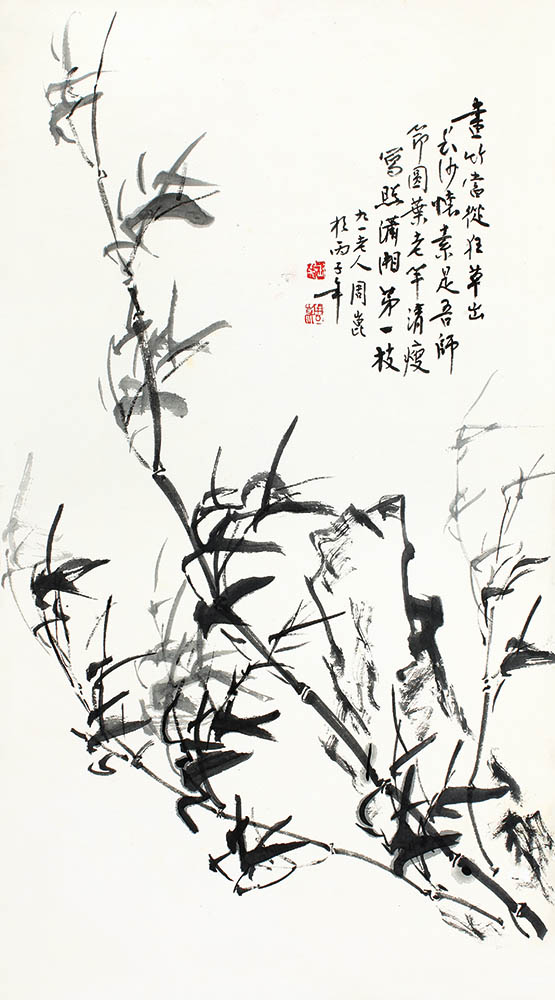 畫竹當從狂草出
長沙懷素是吾師
節圓葉老竿清瘦
寫照瀟湘第一枝
九一老人周崑
於丙子年